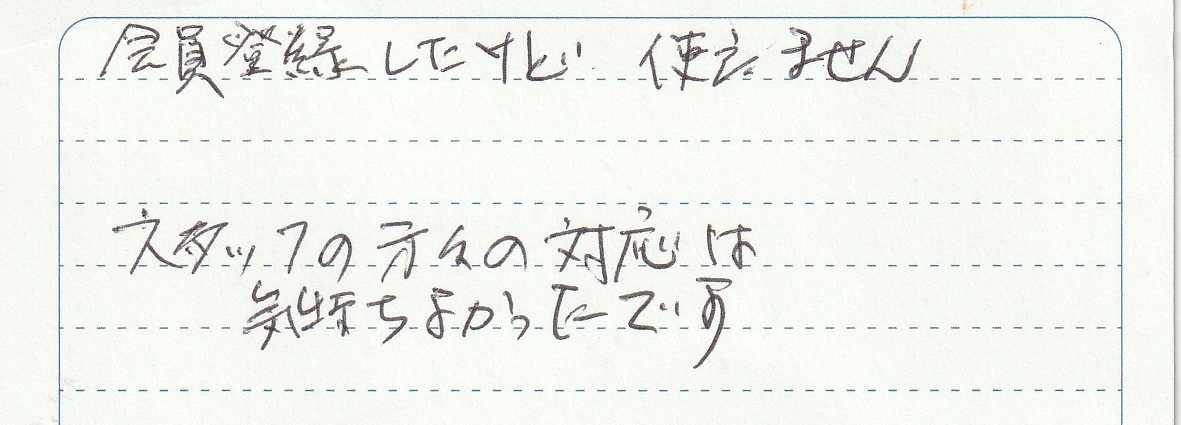 会員登録したけど 使えません
スタッフの方々の対応は
気持ちよかったです